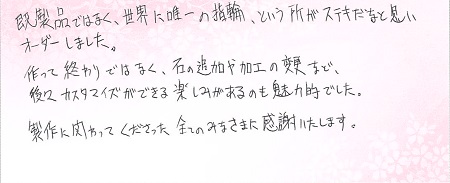 既製品ではなく、世界に唯一の指輪、という所がステキだなと思い
オーダーしました。
作って終わりではなく、石の追加や加工の変更など、
後々カスタマイズができる楽しみがあるのも魅力的でした。
製作に関わってくださった全てのみなさまに感謝いたします。